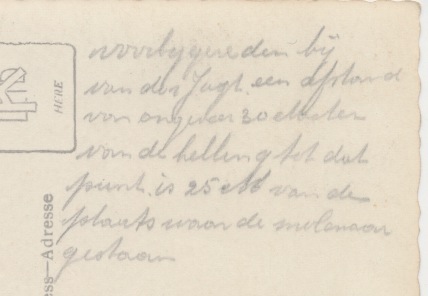 voorbijgereden bij
van der Jagt. een afstand
van ongeveer 30 Meter
van de helling tot dat
punt. is 25 M van de
plaats waar de molenaar
gestaan
HERE
ess—Adresse